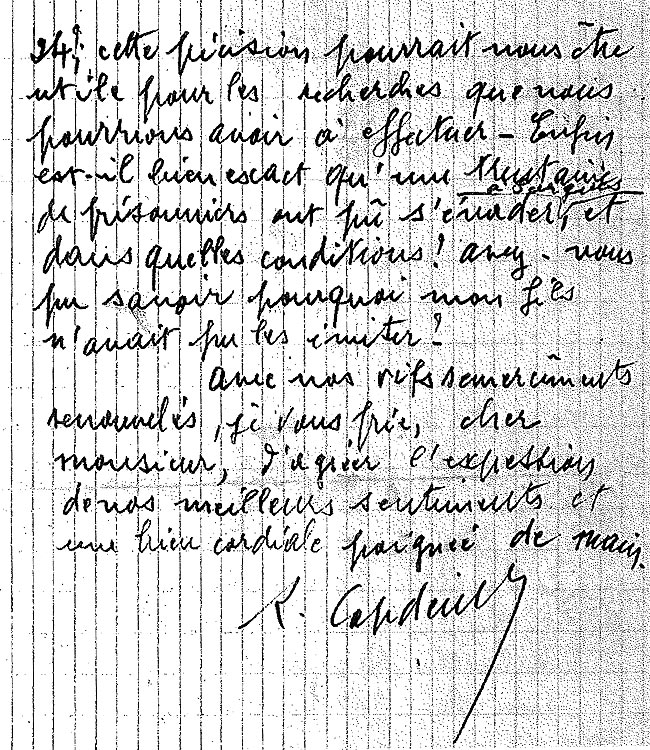 24 ; cette précision pourrait nous être
utile pour les recherches que nous
pourrions avoir à effectuer – Enfin
est-il bien exact qu'une trentaine
à Sarguès
de prisonniers ont pû s'évader, et
dans quelles conditions ? avez-vous
pu savoir pourquoi mon fils
n'avait pu les imiter ?
Avec nos vifs remerciements
renouvelés, je vous prie, cher
monsieur, d'agréer l'expression
de nos meilleurs sentiments et
une bien cordiale poignée de main.
R. Capdeuil